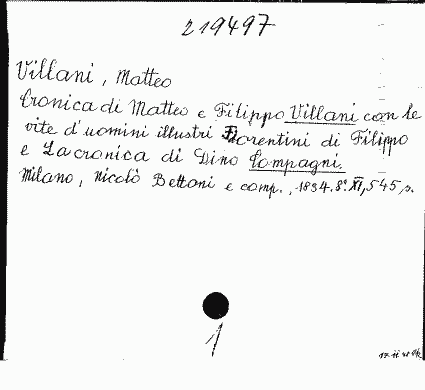 219497
Villani, Matteo
Cronica di Matteo e Filippo Villani con le
vite d'uomini illustri Fiorentini di Filippo
e La cronica di Dino Compagni.
Milano, Nicolò Bettoni e comp., 1834. 8°. XI, 545, p.
1